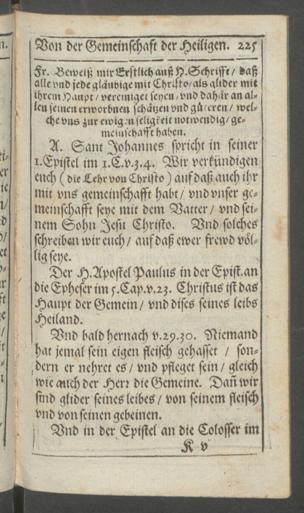 Von der Gemeinschaft der Heiligen. 225
Fr. Beweiß mir Erstlich auß H. Schrifft / daß
alle vnd jede gläubige mit Christo / als glider mit
ihrem Haupt / vereiniget seyen / vnd dahär an al-
len seinen erworbnen schätzen vnd güteren / wel-
che vns zur ewigen seligkeit notwendig / ge-
meinschafft haben.
A. Sant Johannes spricht in seiner
1. Epistel im 1. C. v. 3. 4. Wir verkündigen
euch ( die Lehr von Christo ) auf daß auch ihr
mit vns gemeinschafft habt / vnd vnser ge-
meinschafft seye mit dem Vatter / vnd sei-
nem Sohn Jesu Christo. Vnd solches
schreiben wir euch / auf daß ewer frewd völ-
lig seye.
Der H. Apostel Paulus in der Epist. an
die Epheser im 5. Cap. v. 23. Christus ist das
Haupt der Gemein / vnd dises seines leibs
Heiland.
Vnd bald hernach v. 29. 30. Niemand
hat jemal sein eigen fleisch gehasset / son-
dern er nehret es / vnd pfleget sein / gleich
wie auch der Herr die Gemeine. Dañ wir
sind glider seines leibes / von seinem fleisch
vnd von seinen gebeinen.
Vnd in der Epistel an die Colosser im
K v